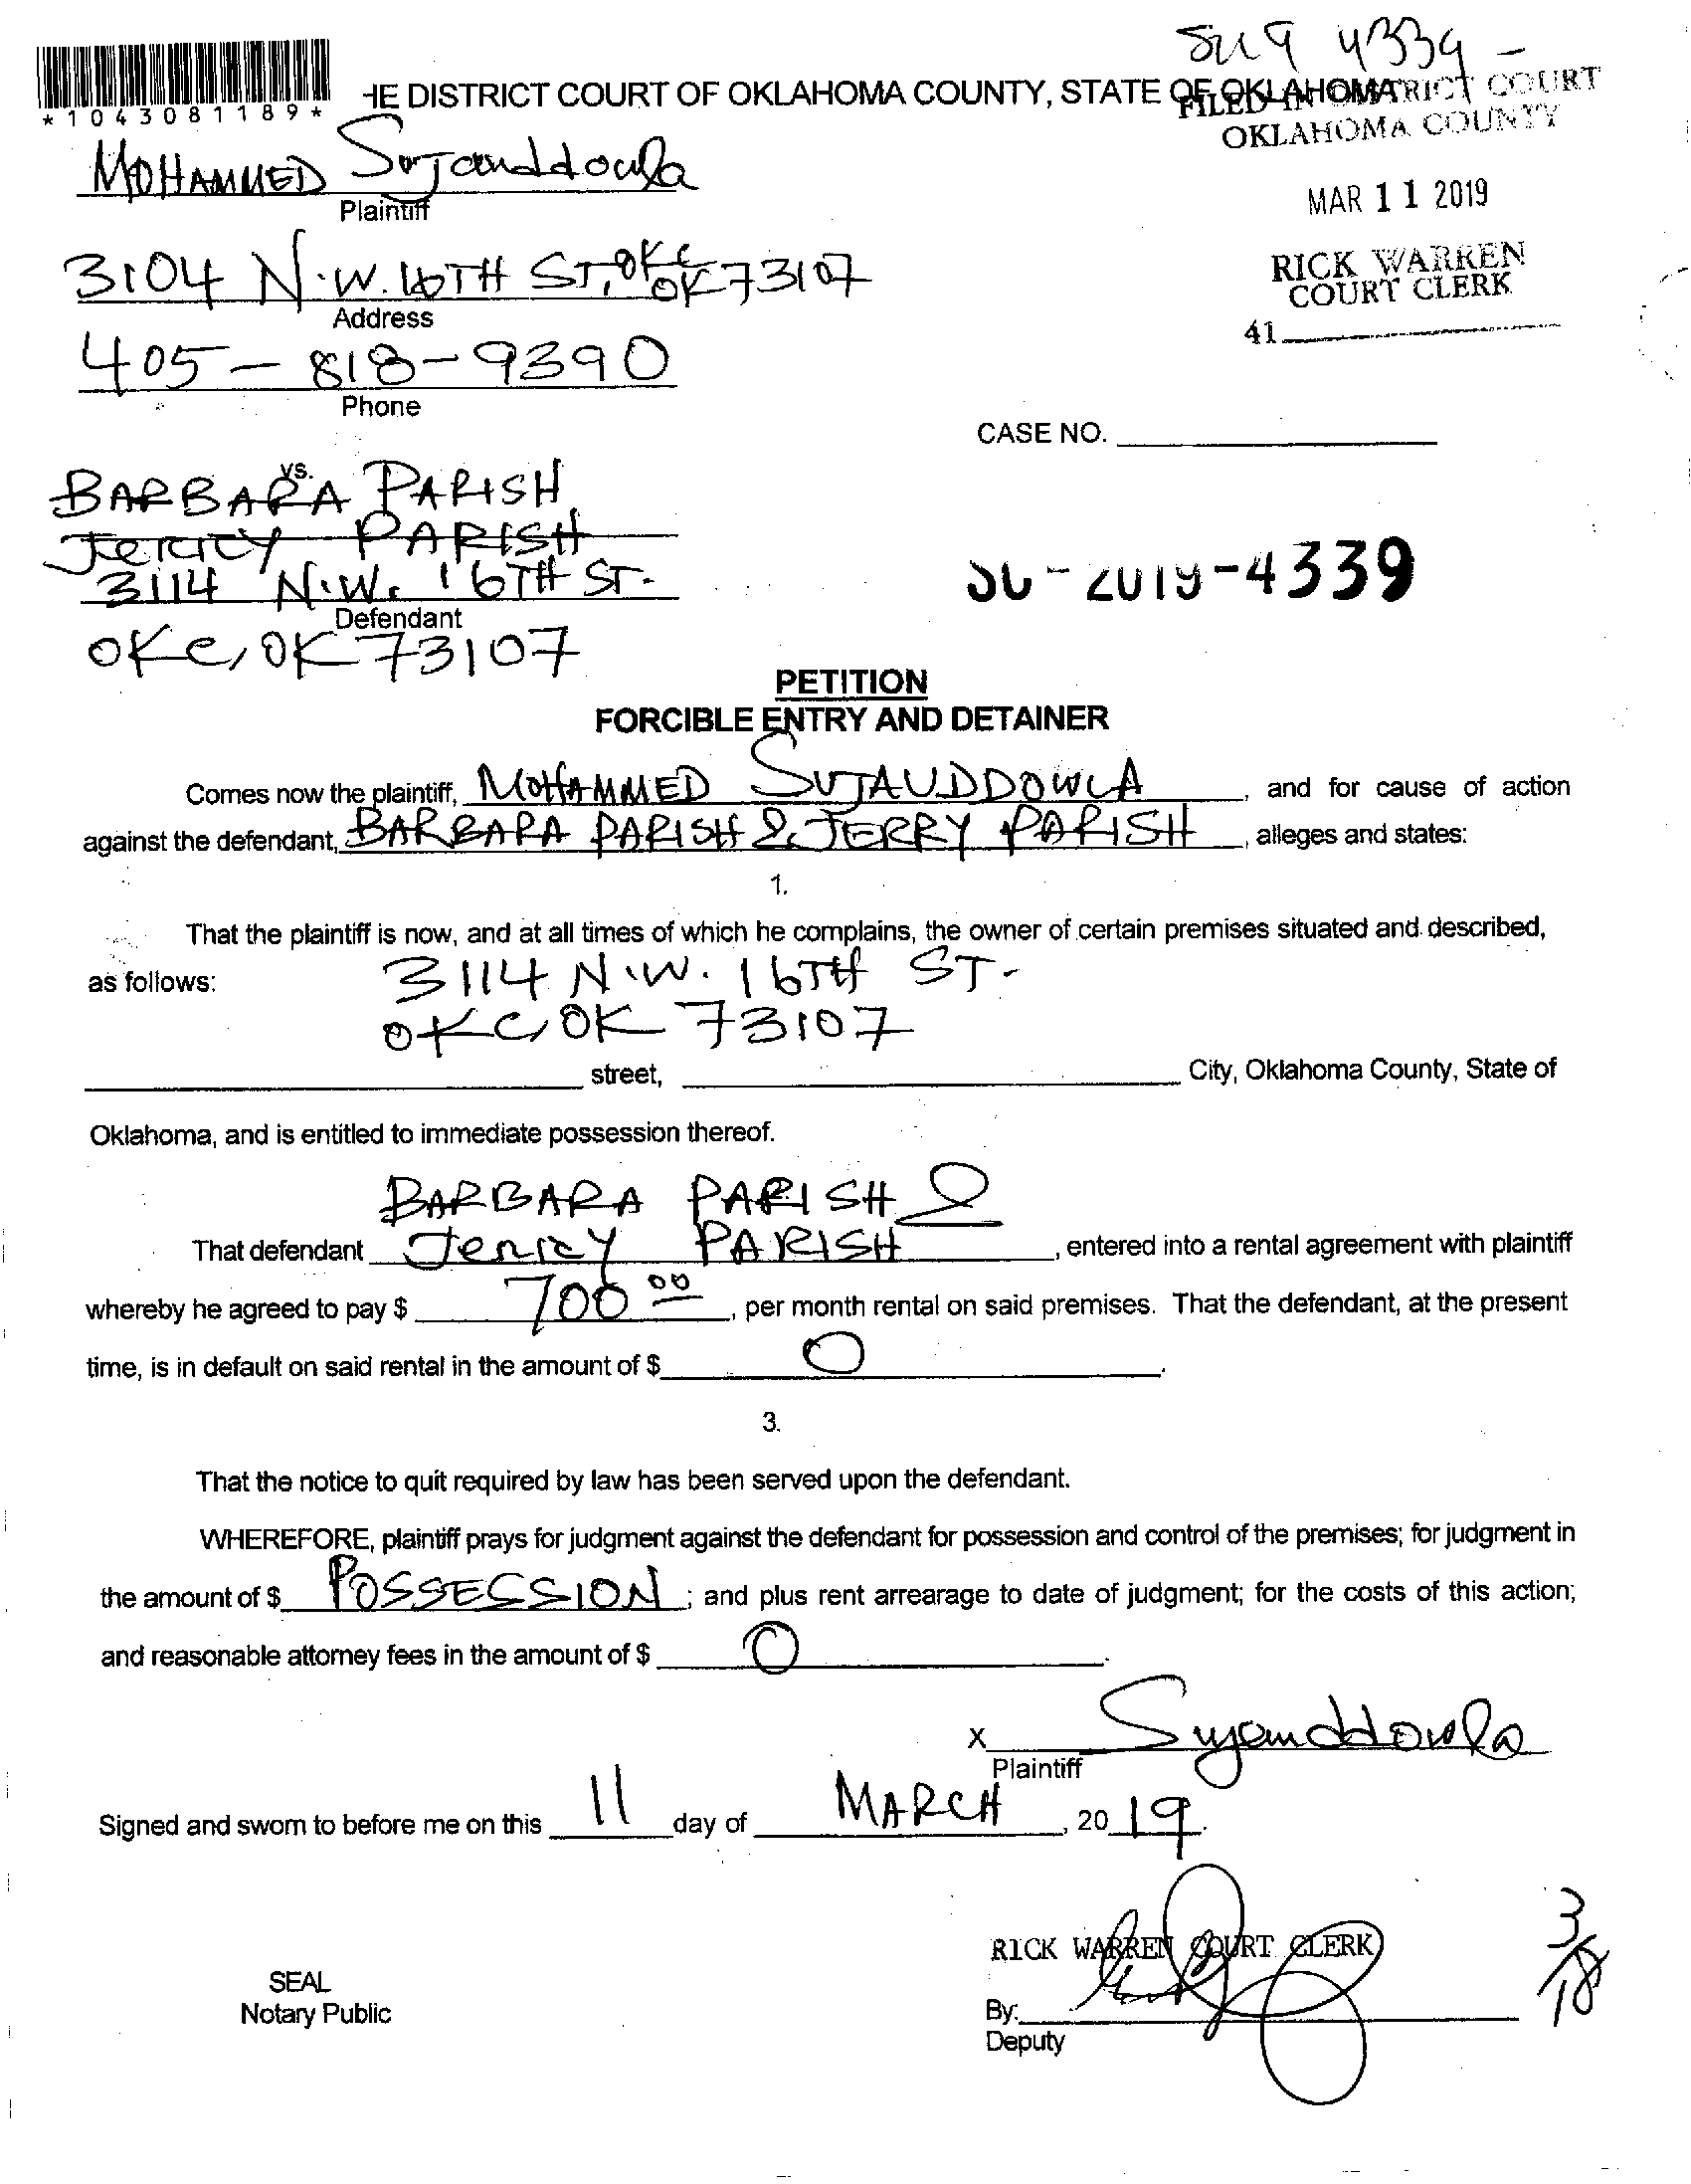 SC19 4339 -
*1043081189*
HE DISTRICT COURT OF OKLAHOMA COUNTY, STATE OF OKLAHOMA
FILED IN DISTRICT COURT
OKLAHOMA COUNTY
MOHAMMED Sujauddowla
Plaintiff
MAR 11 2019
3104 N.W. 16TH ST, OKC OK 73107
Address
RICK WARREN
COURT CLERK
41
405-818-9390
Phone
CASE NO.
vs.
BARBARA PARISH
JERRY PARISH
3114 N.W. 16TH ST.
Defendant
OKC, OK 73107
SC-2019-4339
PETITION
FORCIBLE ENTRY AND DETAINER
Comes now the plaintiff, MOHAMMED SUJAUDDOWLA, and for cause of action
against the defendant, BARBARA PARISH & JERRY PARISH, alleges and states:
1.
That the plaintiff is now, and at all times of which he complains, the owner of certain premises situated and described,
as follows: 3114 N.W. 16TH ST.
OKC, OK 73107
street, City, Oklahoma County, State of
Oklahoma, and is entitled to immediate possession thereof.
BARBARA PARISH &
That defendant JERRY PARISH, entered into a rental agreement with plaintiff
whereby he agreed to pay $ 700 00, per month rental on said premises. That the defendant, at the present
time, is in default on said rental in the amount of $ 0.
3.
That the notice to quit required by law has been served upon the defendant.
WHEREFORE, plaintiff prays for judgment against the defendant for possession and control of the premises; for judgment in
the amount of $ POSSESSION; and plus rent arrearage to date of judgment; for the costs of this action;
and reasonable attorney fees in the amount of $ 0.
X Sujauddowla
Plaintiff
Signed and sworn to before me on this 11 day of MARCH, 2019.
RICK WARREN COURT CLERK
3/18
SEAL
Notary Public
By:
Deputy